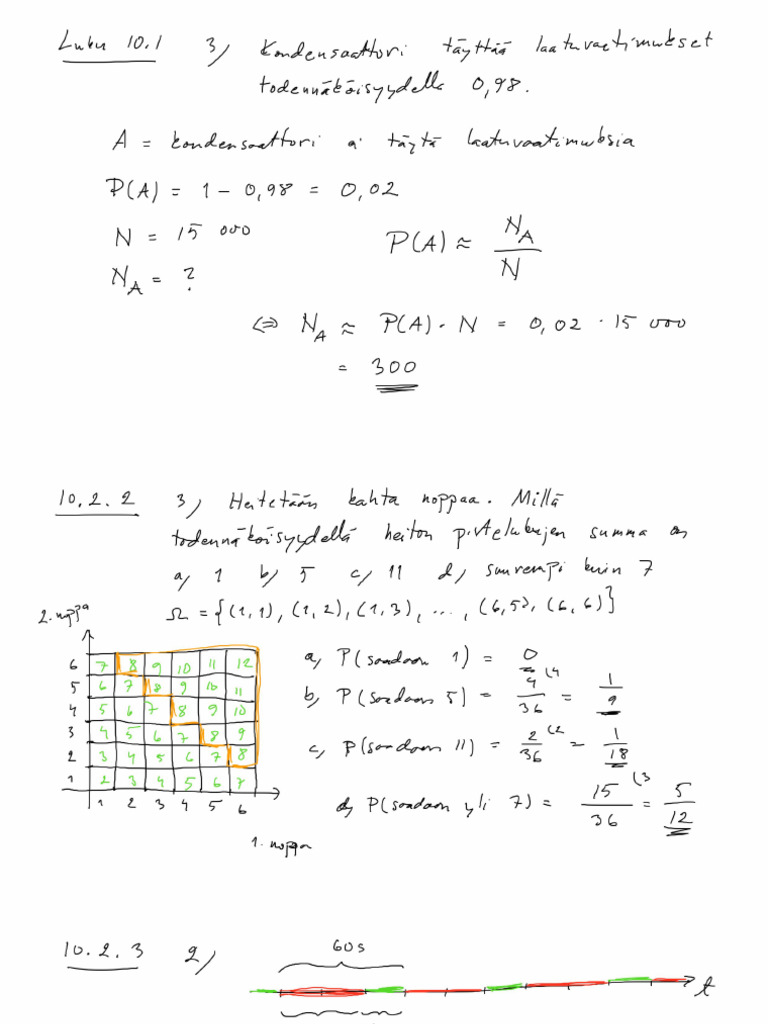 Luku 10.1 3) Kondensaattori täyttää laatuvaatimukset
todennäköisyydellä 0,98.
A = kondensaattori ei täytä laatuvaatimuksia
P(A) = 1 - 0,98 = 0,02
N = 15 000 P(A) ≈ N_A / N
N_A = ?
⇔ N_A ≈ P(A) · N = 0,02 · 15 000
= 300
10.2.2 3) Heitetään kahta noppaa. Millä
todennäköisyydellä heiton pistelukujen summa on
a) 1 b) 5 c) 11 d) suurempi kuin 7
Ω = {(1,1), (1,2), (1,3), ..., (6,5), (6,6)}
2. noppa
6 7 8 9 10 11 12
5 6 7 8 9 10 11
4 5 6 7 8 9 10
3 4 5 6 7 8 9
2 3 4 5 6 7 8
1 2 3 4 5 6 7
1 2 3 4 5 6
1. noppa
a) P(saadaan 1) = 0
b) P(saadaan 5) = 4/36 (4 = 1/9
c) P(saadaan 11) = 2/36 (2 = 1/18
d) P(saadaan yli 7) = 15/36 (3 = 5/12
10.2.3 2) 60s
t